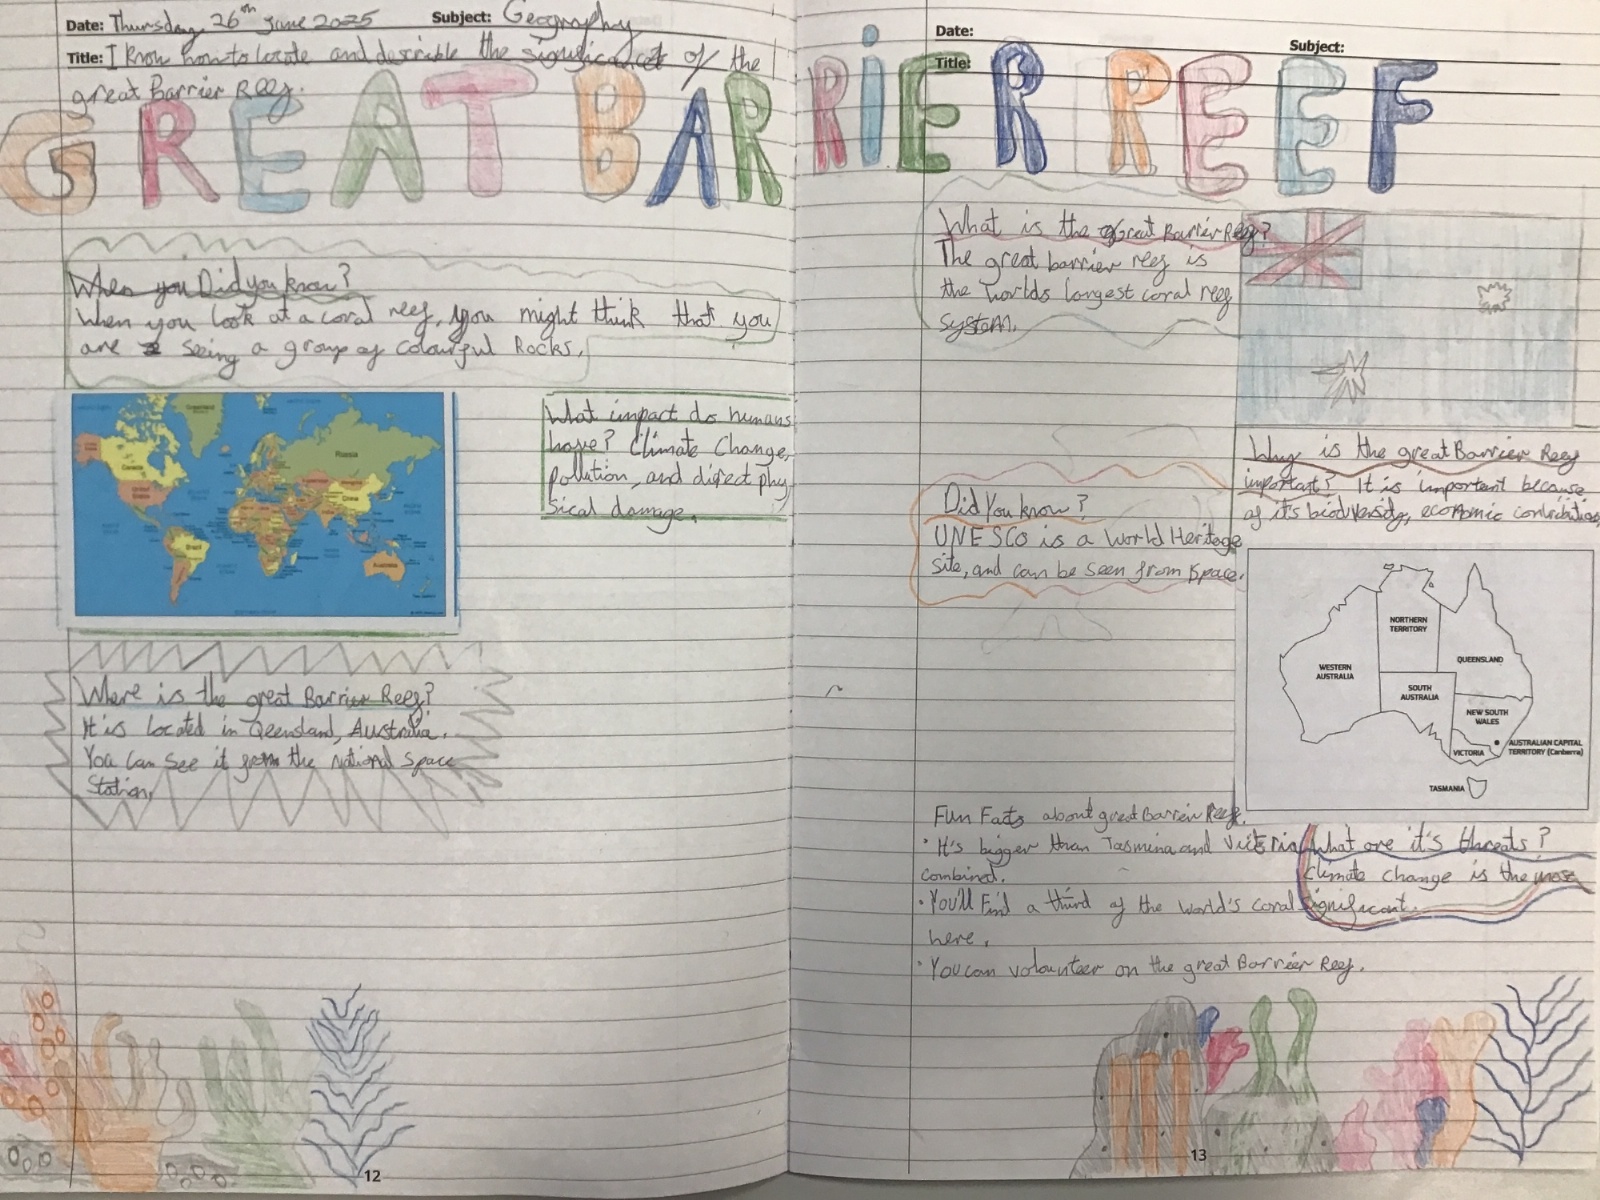 Date: Thursday, 26th June 2025 Subject: Geography
Title: I know how to locate and describe the significance of the
great Barrier Reef.
GREAT BAR
When you Did you know?
When you look at a coral reef, you might think that you
are seing a group of colourful Rocks.
Greenland
Russia
Canada
China
Brazil
Australia
What impact do humans
have? Climate Change,
pollution, and direct phy
sical damage.
Where is the great Barrier Reef?
It is located in Qeensland, Australia.
You can see it from the national Space
Station.
12
Date: Subject:
Title:
RiER REEF
What is the Great Barrier Reef?
The great barrier reef is
the worlds largest coral reef
system.
Why is the great Barrier Reef
important? It is important because
of it's biodiversity, economic contribution,
Did You know?
UNESCO is a World Heritage
site, and can be seen from space.
NORTHERN
TERRITORY
WESTERN
AUSTRALIA
QUEENSLAND
SOUTH
AUSTRALIA
NEW SOUTH
WALES
VICTORIA
AUSTRALIAN CAPITAL
TERRITORY (Canberra)
TASMANIA
Fun Facts about great Barrier Reef.
· It's bigger than Tasmina and Victoria
combined.
· You'll Find a third of the world's coral
here.
· You can volounteer on the great Barrier Reef.
What are it's threats?
Climate change is the most
significant.
13